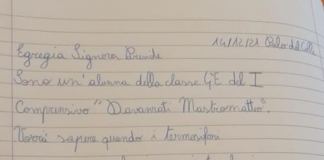 14/12/21 Palo del Colle
Egregia Signora Preside
Sono un'alunna della classe GE del I
Comprensivo "Davanzati Mastromatteo".
Vorrei sapere quando i termosifoni